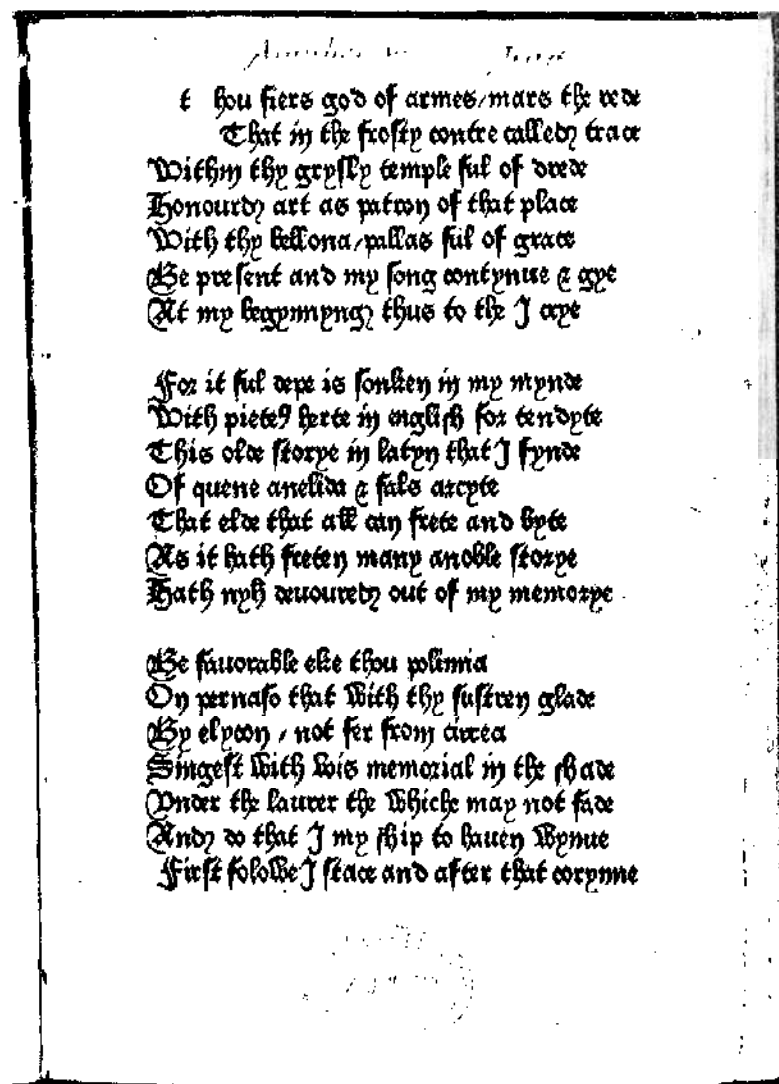 t hou fiers god of armes/mars the rede
That in the frosty contre called trace
Within thy grysly temple ful of drede
Honourd art as patron of that place
With thy bellona/pallas ful of grace
Be present and my song contynue & gye
At my begynnyng thus to the I crye
For it ful depe is sonken in my mynde
With pietę herte in englissh for tendyte
This olde storye in latyn that I fynde
Of quene anelida & fals arcyte
That elde that all can frete and byte
As it hath freten many anoble storye
Hath nyh deuoured out of my memorye
Be fauorable eke thou polimia
On pernaso that with thy sustren glade
By elycon / not fer from cirrea
Singest with wis memorial in the shade
Vnder the laurer the whiche may not fade
And do that I my ship to hauen wynne
First folowe I stace and after that corynne